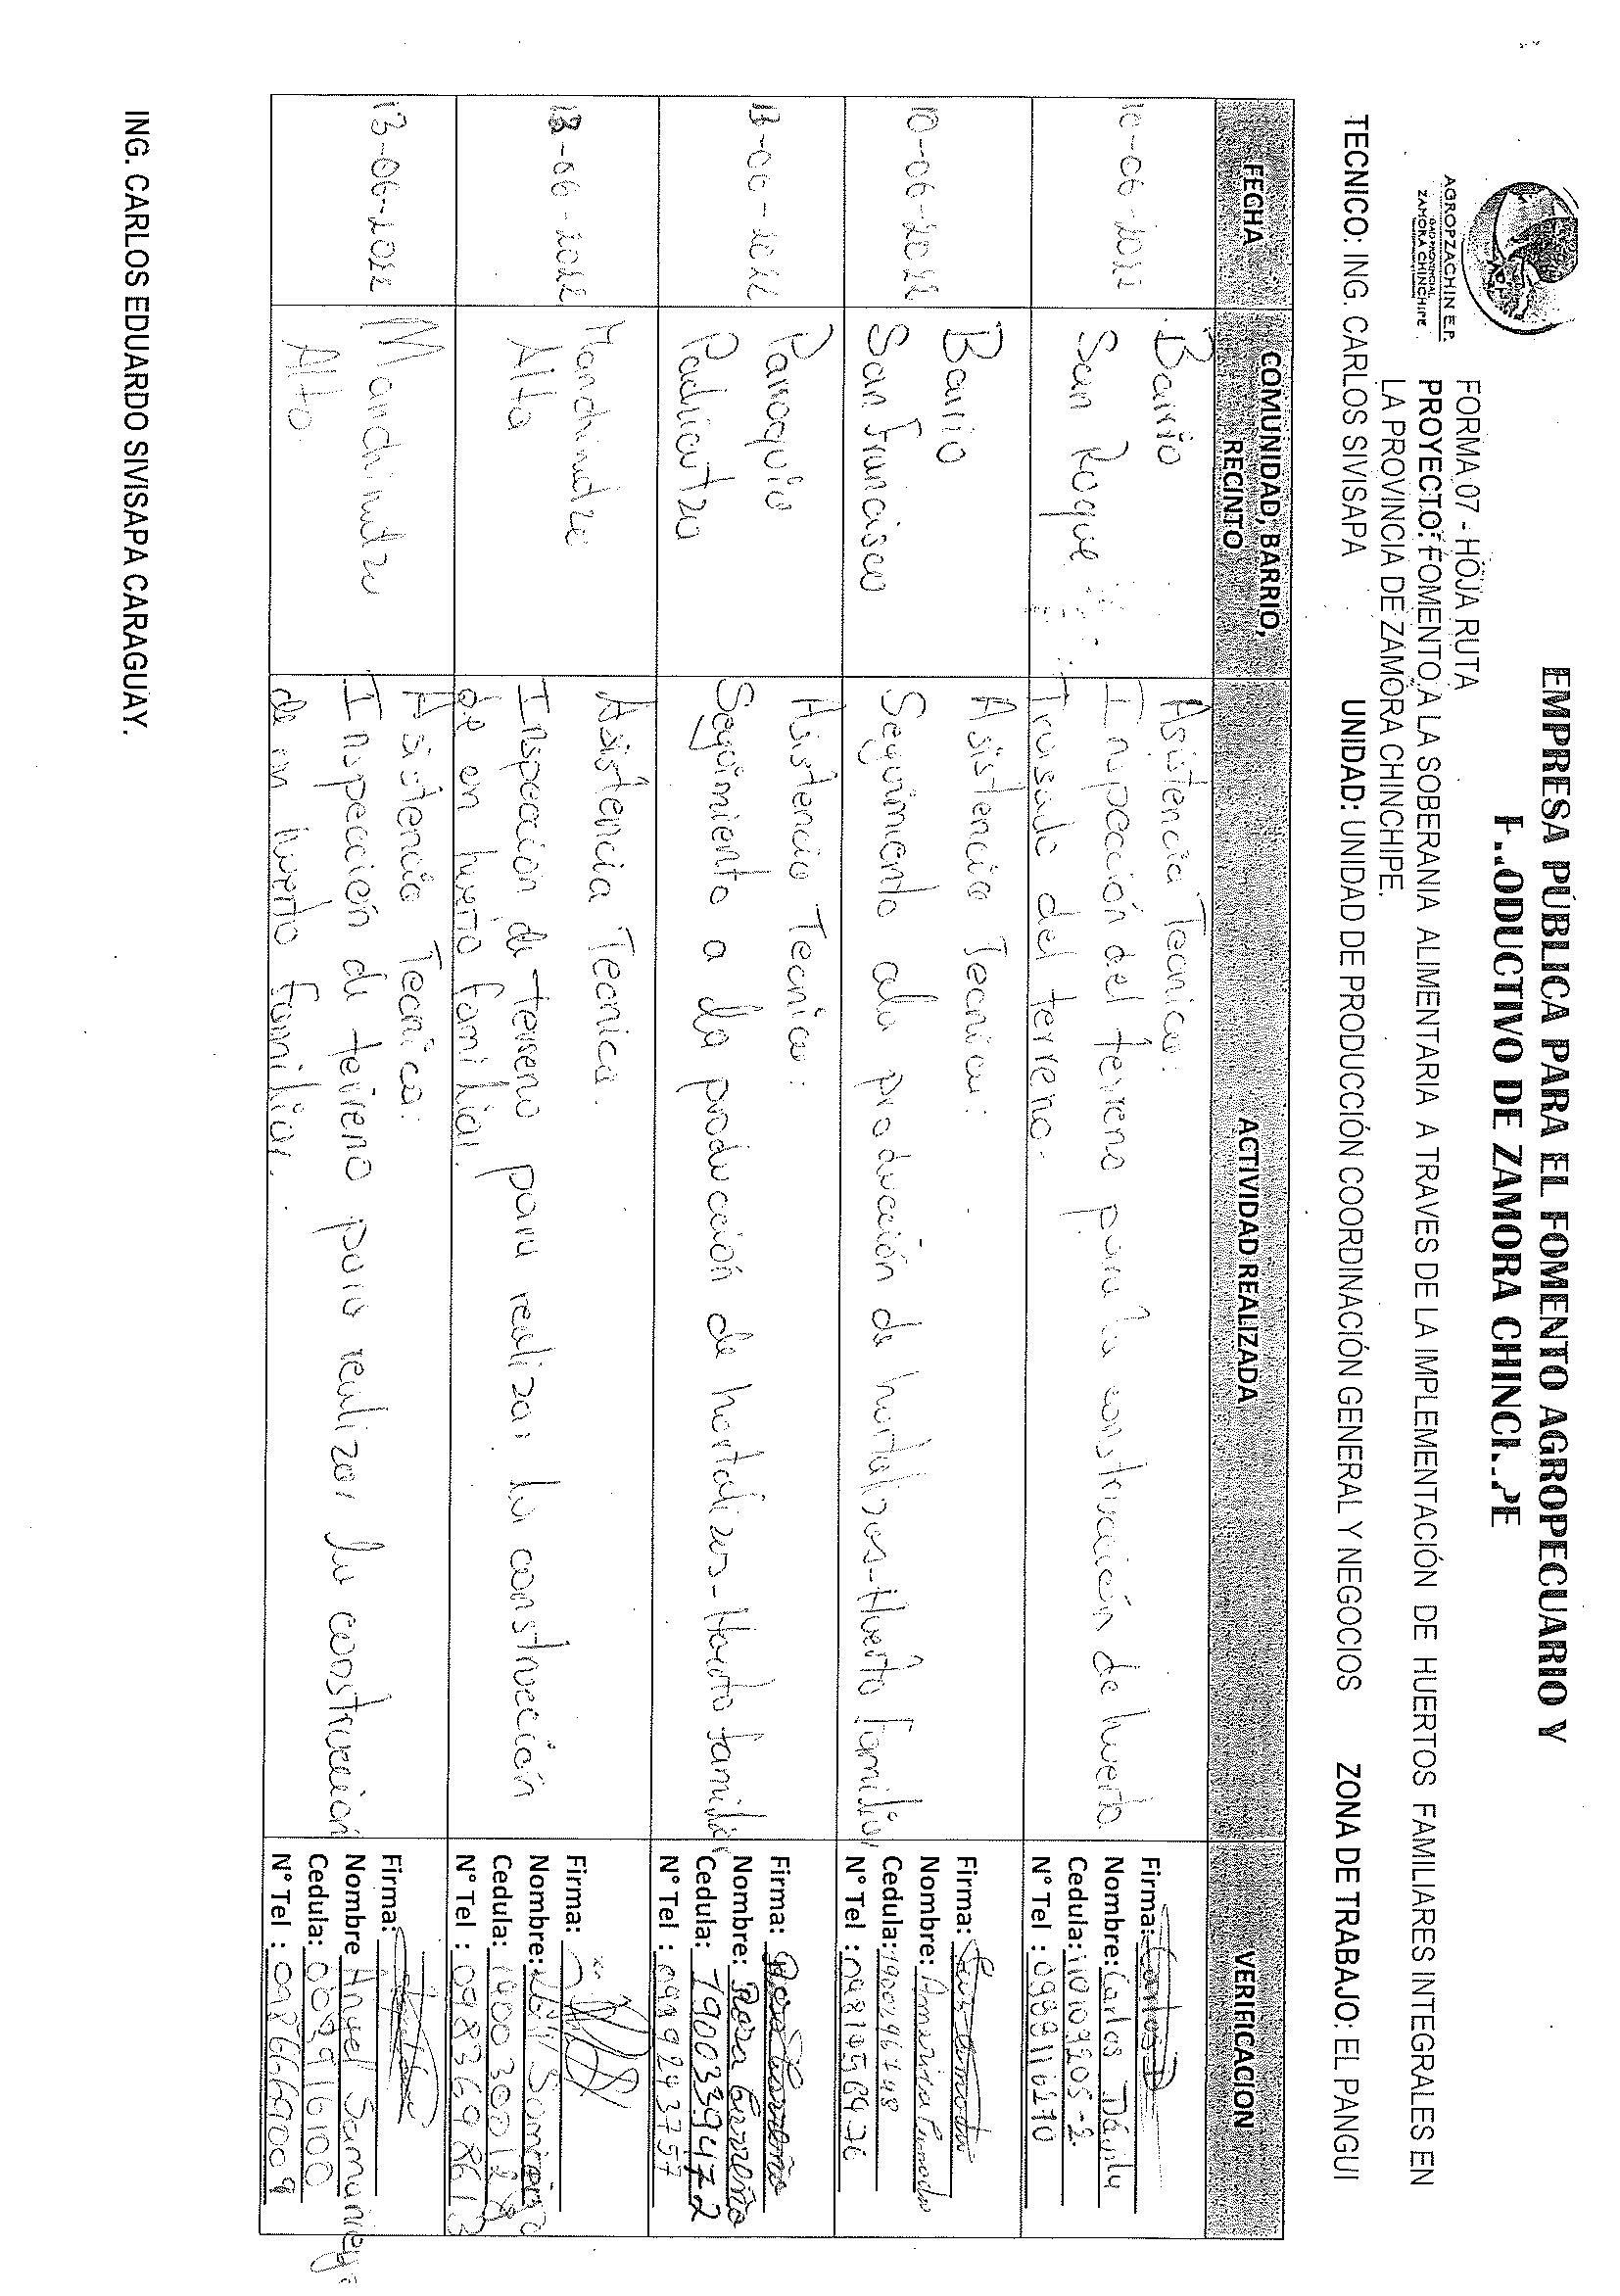 EMPRESA PÚBLICA PARA EL FOMENTO AGROPECUARIO Y
PRODUCTIVO DE ZAMORA CHINCHIPE
AGROPZACHIN E.P.
GAD PROVINCIAL
ZAMORA CHINCHIPE
FORMA 07 - HOJA RUTA
PROYECTO: FOMENTO A LA SOBERANIA ALIMENTARIA A TRAVES DE LA IMPLEMENTACIÓN DE HUERTOS FAMILIARES INTEGRALES EN
LA PROVINCIA DE ZAMORA CHINCHIPE.
TECNICO: ING. CARLOS SIVISAPA UNIDAD: UNIDAD DE PRODUCCIÓN COORDINACIÓN GENERAL Y NEGOCIOS ZONA DE TRABAJO: EL PANGUI
FECHA
COMUNIDAD, BARRIO,
RECINTO
ACTIVIDAD REALIZADA
VERIFICACION
10-06-2022
Barrio
San Roque
Asistencia Tecnica:
Inspección del terreno para la construcción de huerto
Trasado del terreno.
Firma: Carlos D
Nombre: Carlos Dávila
Cedula:
N° Tel :
10-06-2022
Barrio
San Francisco
Asistencia Tecnica:
Seguimiento ala producción de hortalizas-Huerto familiar
Firma:
Nombre: America
Cedula: 1900296748
N° Tel :
13-06-2022
Parroquia
Padicutza
Asistencia Tecnica:
Seguimiento a la producción de hortalizas-Huerto familiar
Firma: Rosa Carreño
Nombre: Rosa Carreño
Cedula: 1900339472
N° Tel : 0999293757
13-06-2022
Manchinatza
Alto
Asistencia Tecnica.
Inspección de terreno para realizar la construcción
de en huerto familiar.
Firma:
Nombre:
Cedula:
N° Tel :
13-06-2022
Manchinatza
Alto.
Asistencia Tecnica:
Inspección de terreno para realizar la construcción
de un huerto familiar.
Firma:
Nombre Angel Samaniego
Cedula:
N° Tel : 0986669009
ING. CARLOS EDUARDO SIVISAPA CARAGUAY.